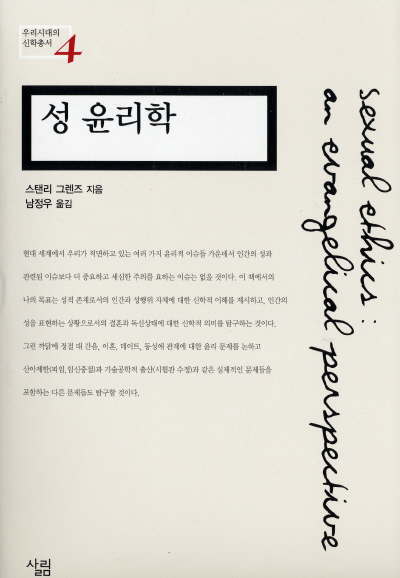 우리시대의
신학총서 4
성 윤리학
스탠리 그렌즈 지음
남정우 옮김
현대 세계에서 우리가 직면하고 있는 여러 가지 윤리적 이슈들 가운데서 인간의 성과
관련된 이슈보다 더 중요하고 세심한 주의를 요하는 이슈는 없을 것이다. 이 책에서의
나의 목표는 성적 존재로서의 인간과 성행위 자체에 대한 신학적 이해를 제시하고, 인간의
성을 표현하는 상황으로서의 결혼과 독신상태에 대한 신학적 의미를 탐구하는 것이다.
그런 까닭에 정절 대 간음, 이혼, 데이트, 동성애 관계에 대한 윤리 문제를 논하고
산아제한(피임,임신중절)과 기술공학적 출산(시험관 수정)과 같은 실제적인 문제들을
포함하는 다른 문제들도 탐구할 것이다.
sexual ethics:
an evangelical perspective
살림